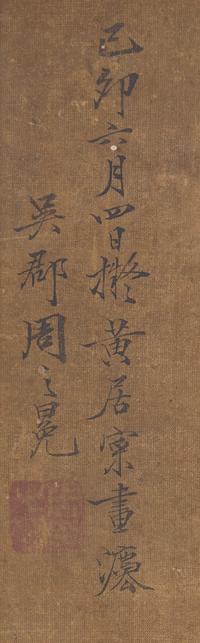 己卯六月四日擬黃居寀畫瀍
吳郡周之冕